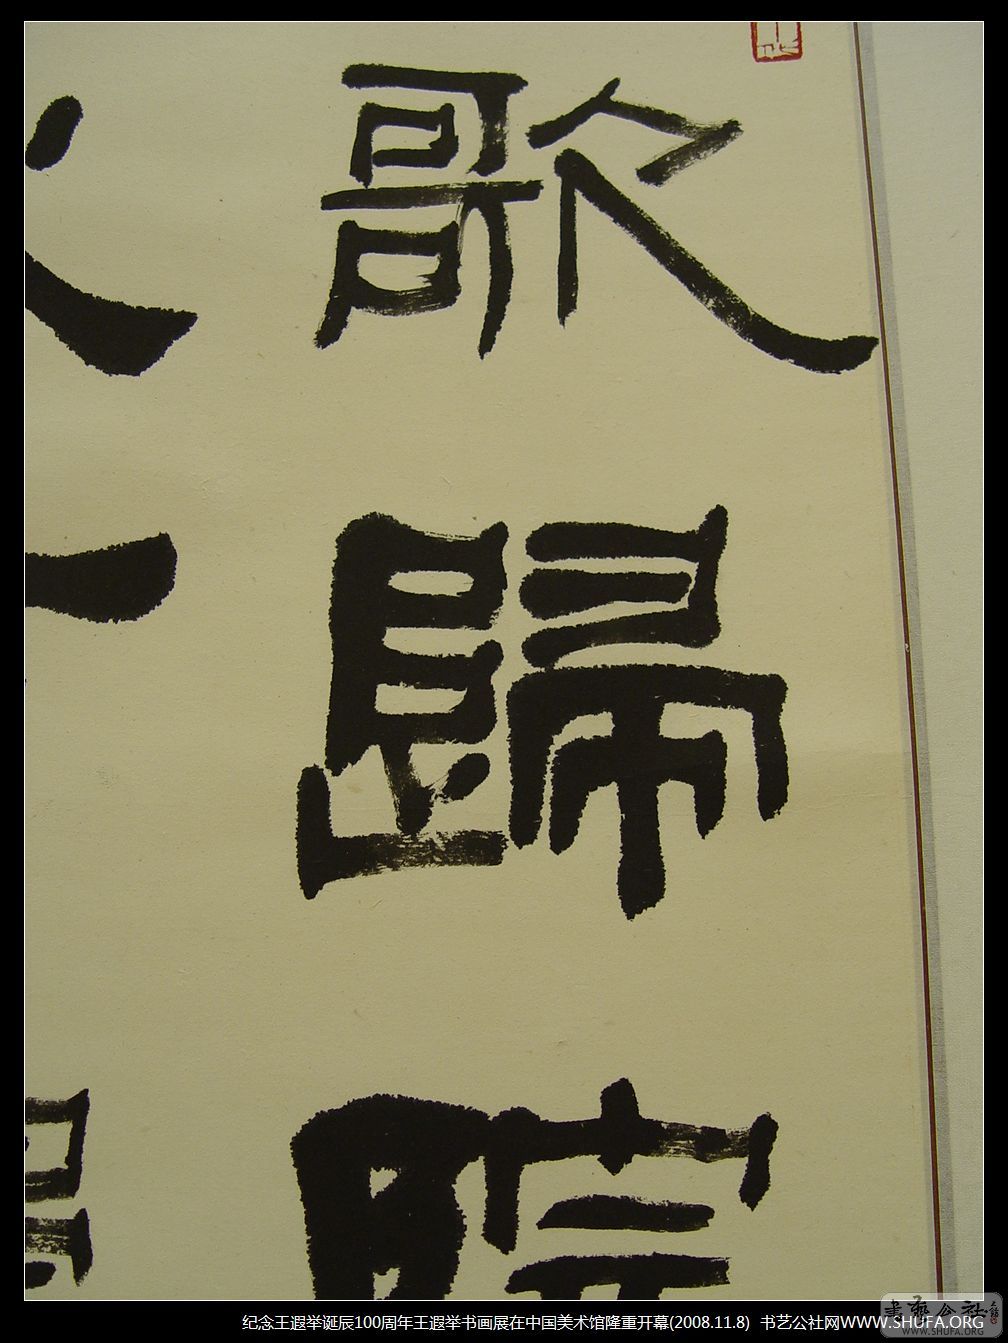 歌歸院
纪念王遐举诞辰100周年王遐举书画展在中国美术馆隆重开幕(2008.11.8) 书艺公社网WWW.SHUFA.ORG
書藝公社
WWW.SHUFA.ORG